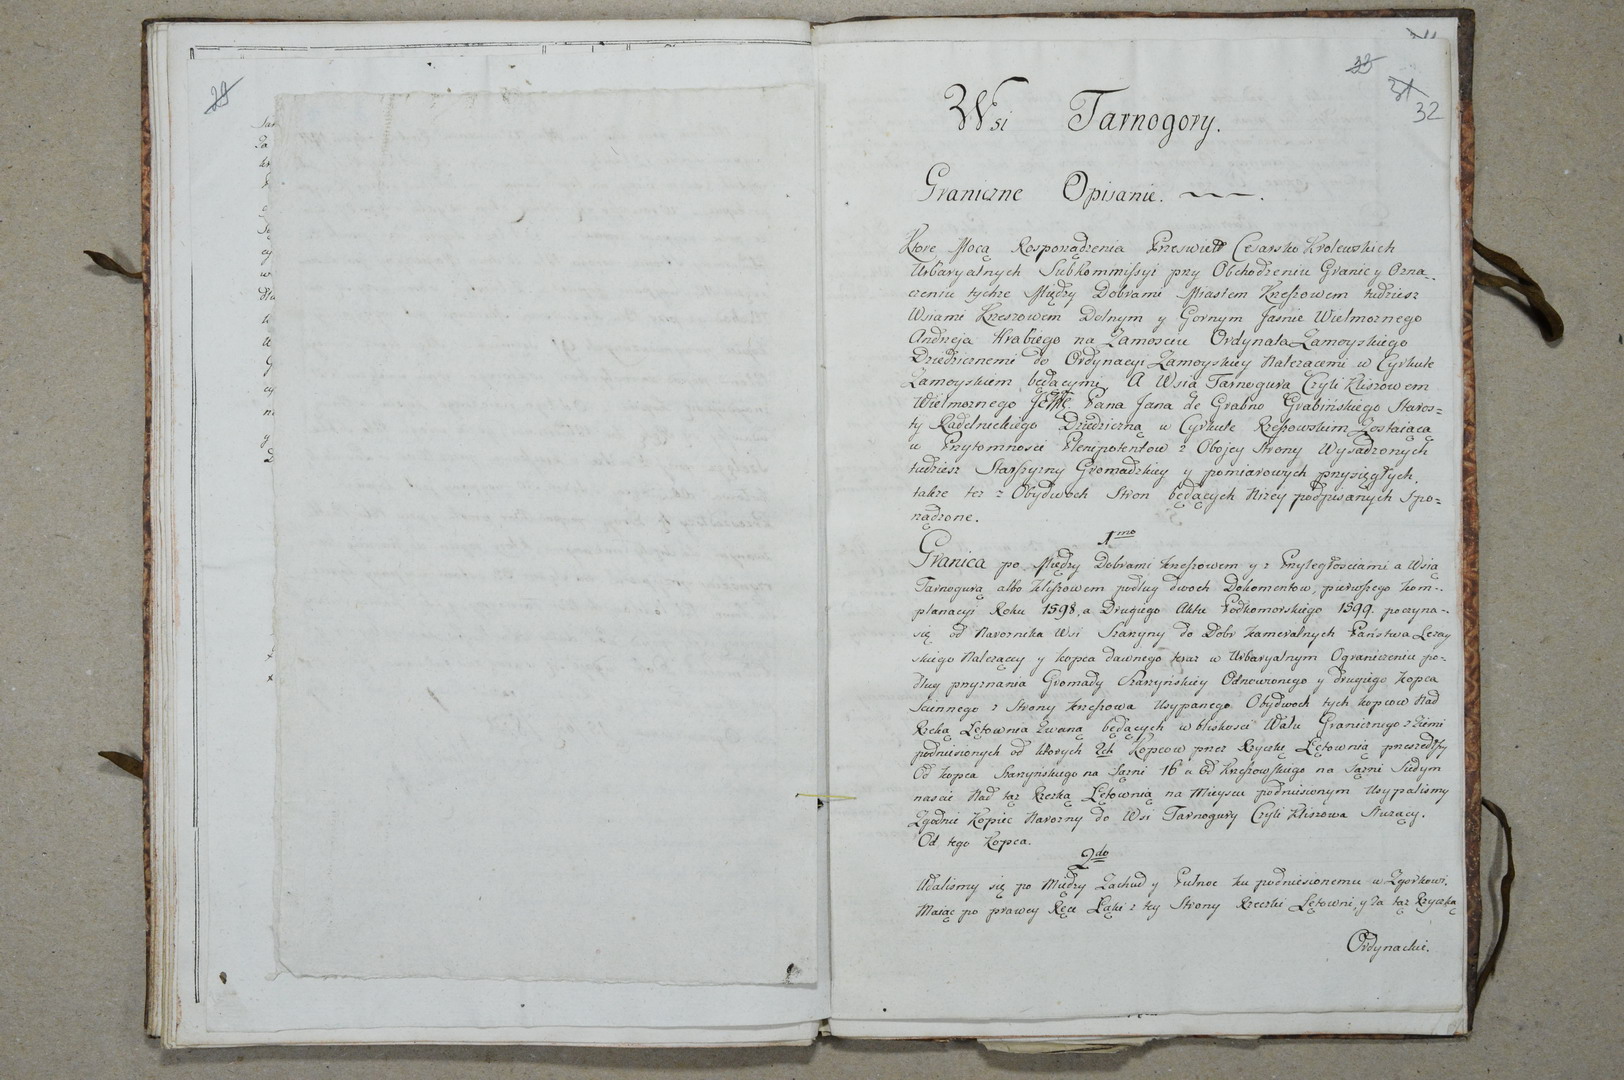 29
33
31
32
Wsi Tarnogory.
Graniczne Opisanie.
Ktore Mocą Rosporządzenia Przeswiett Cesarsko Krolewskich
Urbaryalnych Subkommissyi przy Obchodzeniu Granic y Ozna-
czeniu tychze Między Dobrami Miastem Krzeszowem tudziesz
Wsiami Krzeszowem Dolnym y Gornym Jasnie Wielmoznego
Andrzeja Hrabiego na Zamosciu Ordynata Zamoyskiego
Dziedzicznemi do Ordynacyi Zamoyskiey Nalezacemi w Cyrkule
Zamoyskiem będącymi, A Wsią Tarnogura Czyli Kliszowem
Wielmoznego Pana Jana de Grabno Grabinskiego Staros=
ty Radelnickiego Dziedziczną w Cyrkule Rzeszowskim Zostaiącą
w Przytomnosci Plenipotentow z Obojey Strony Wysadzonych
tudziesz Starszyzny Gromadzkiey y pomiarowych przysięgłych,
takze tez z Obydwoch Stron będących Nizey podpisanych Spo=
rządzone.
1mo
Granica po Między Dobrami Krzeszowem y z Przyległosciami a Wsią
Tarnogurą albo Kliszowem podług dwoch Dokumentow, pierwszego Kom-
planacyi Roku 1598, a Drugiego Aktu Podkomorskiego 1599 poczyna-
się od Naroznika Wsi Szarzyny do Dobr Kameralnych Państwa Lezay
skiego Nalezącey y kopca dawnego teraz w Urbaryalnym Ograniczeniu po=
dług przyznania Gromady Szarzyńskiey Odnowionego y drugiego kopca
Sciennego z Strony Krzeszowa Usypanego Obydwoch tych kopcow Nad
Rzeką Łętownia Zwaną będących w bliskosci Wału Granicznego z Ziemi
podniesionych od ktorych Kopcow przez Rzyczkę Łętownią przeszedłszy
Od kopca Szarzyńskiego na Sązni 16 a Od Krzeszowskiego na Sązni Siedym
nascie Nad tąz Rzeczką Łętownią na Mieyscu podniesionym Usypalismy
Zgodnie Kopiec Narozny do Wsi Tarnogury Czyli Kliszowa Słuzący.
Od tego Kopca.
2do
Udalismy się po Między Zachod y Pułnoc ku podniesionemu w Zgorkowi.
Maiąc po prawey Ręce Łąki z tey Strony Rzeczki Łętowni, y Za tąz Rzyczką
Ordynackie.